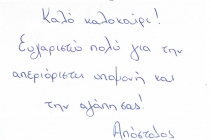 Καλό καλοκαίρι!
Ευχαριστώ πολύ για την
απεριόριστη υπομονή και
την αγάπη σας!
Απόστολος